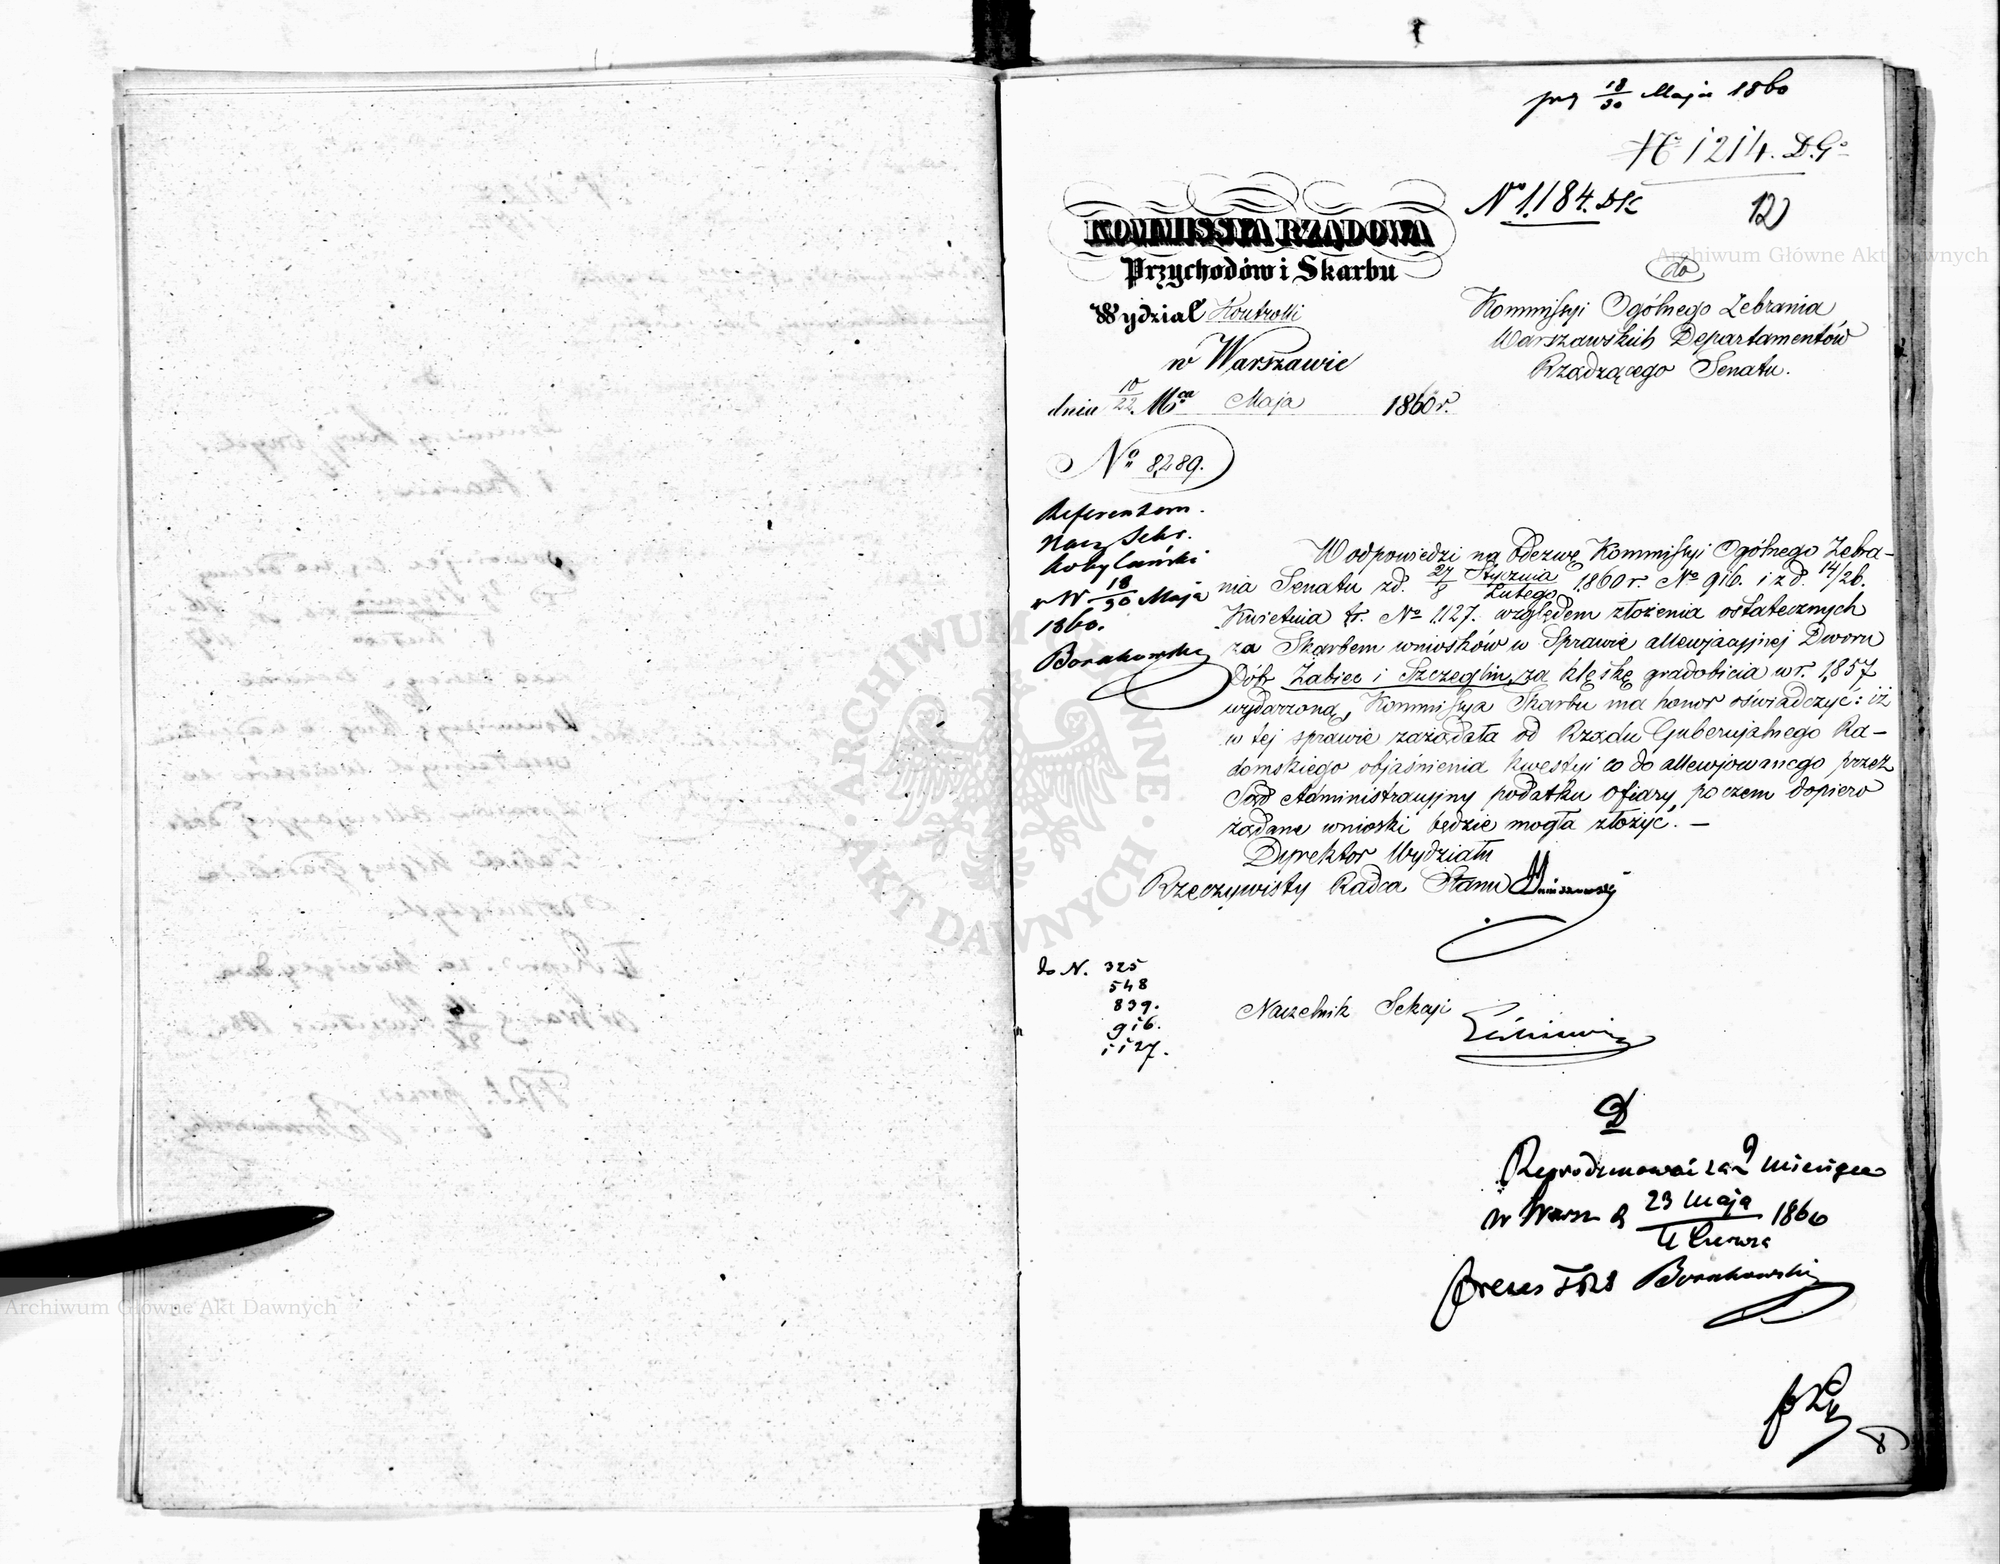 18/30 Maja 1860
N° 1214. D.G°
N° 1184. DK
12
KOMMISSYA RZĄDOWA
Przychodów i Skarbu
Wydział Kontrolli
w Warszawie
dnia 10/22. Mca Maja 1860 r.
N° 8289.
do
Kommissyi Ogólnego Zebrania
Warszawskich Departamentów
Rządzącego Senatu.
Referentem
Nacz. Sekr.
Kobylański
w W 18/30 Maja
1860.
Borakowski
W odpowiedzi na Odezwę Kommissyi Ogólnego Zebra-
nia Senatu z d. 27 Stycznia/8 Lutego 1860 r. N° 916. i z d. 14/26.
Kwietnia t.r. N° 1127. względem złożenia ostatecznych
za Skarbem wniosków w Sprawie allewjacyjnej Dworu
Dóbr Żabiec i Szczeglin, za klęskę gradobicia w r. 1857
wydarzoną, Kommissya Skarbu ma honor oświadczyć: iż
w tej sprawie zażądała od Rządu Gubernjalnego Ra-
domskiego objaśnienia kwestyi co do allewjowanego przez
Sąd Administracyjny podatku Ofiary, poczem dopiero
żądane wnioski będzie mogła złożyć. —
Dyrektor Wydziału
Rzeczywisty Radca Stanu
do N. 325
548
839.
916.
1127.
Naczelnik Sekcji
D
Reprodukować za 2 miesiące
w Warsz d 23 Maja/4 Czerwca 1860
Prezes Borakowski
8
ARCHIWUM GŁÓWNE AKT DAWNYCH
Archiwum Główne Akt Dawnych
Archiwum Główne Akt Dawnych